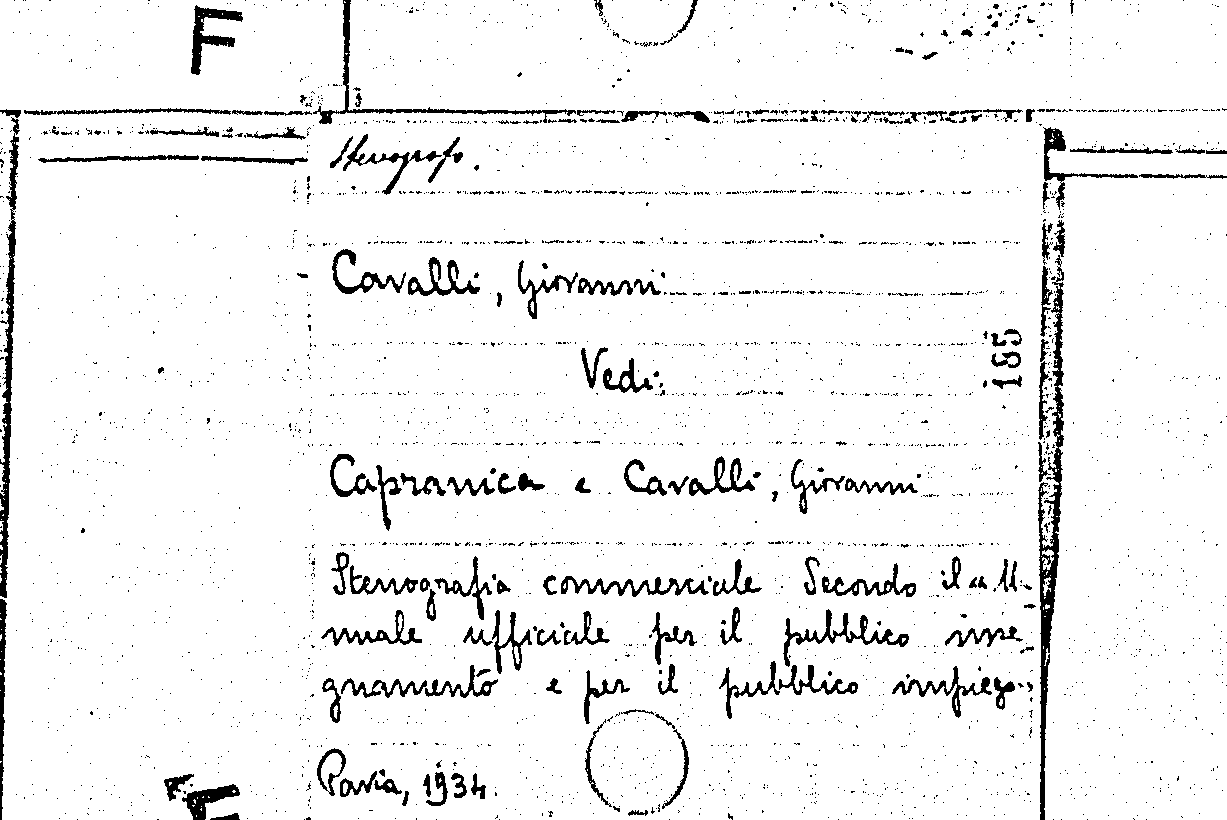 F
Stenografo.
Cavalli, Giovanni
Vedi:
185
Capranica e Cavalli, Giovanni
Stenografia commerciale Secondo il "M
nuale ufficiale per il pubblico inse
gnamento e per il pubblico impiego"
Pavia, 1934.